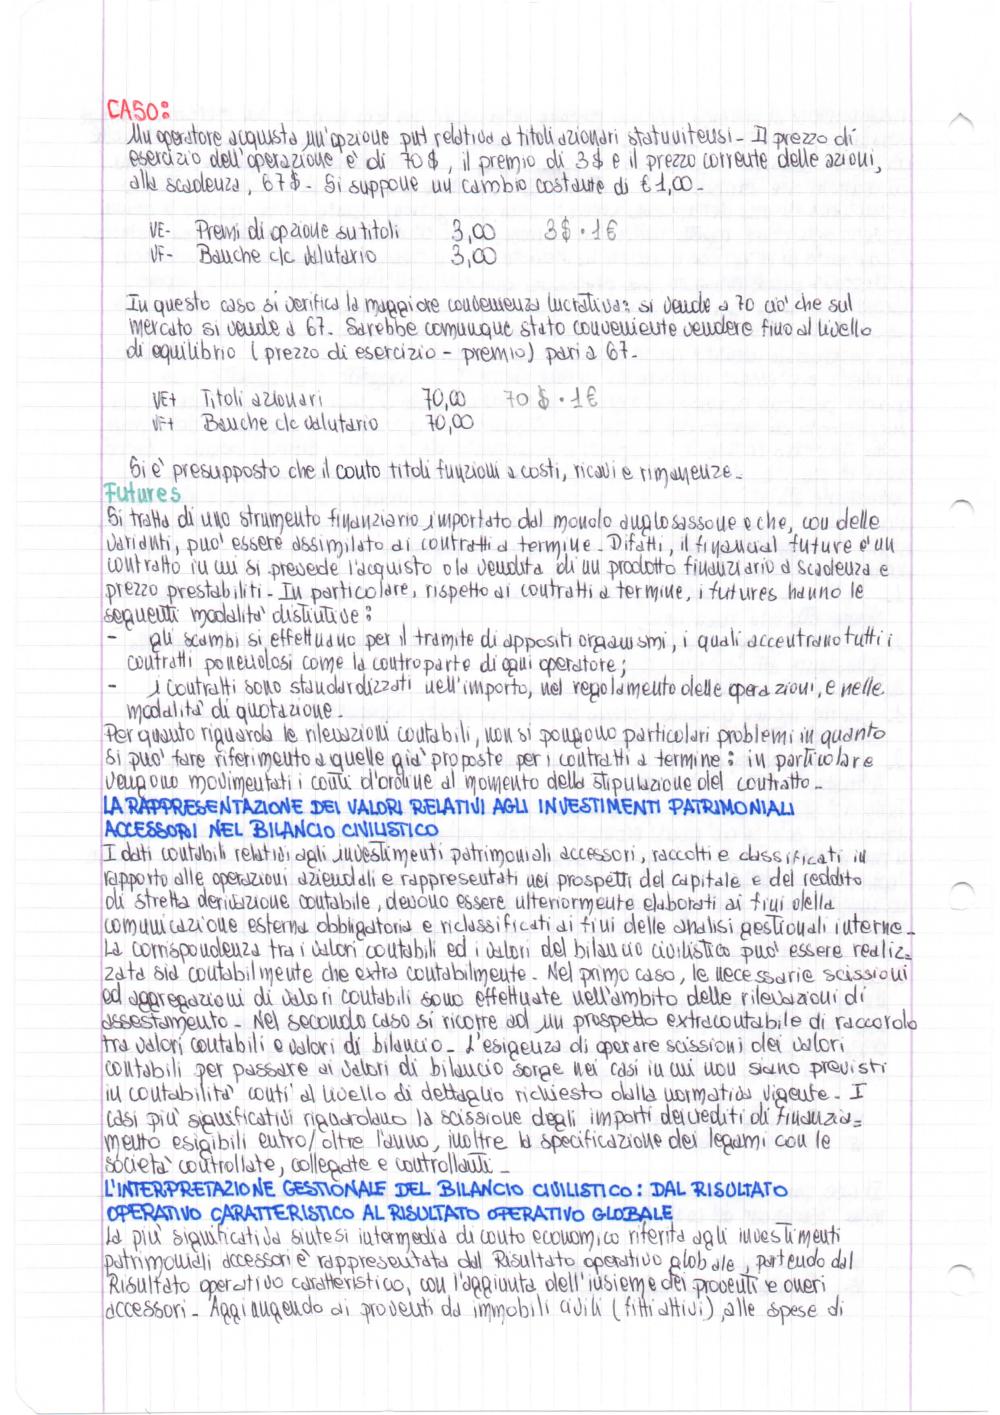 CASO:
Un operatore acquista un'opzione put relativa a titoli azionari statunitensi - Il prezzo di
esercizio dell'operazione è di 70$, il premio di 3$ e il prezzo corrente delle azioni,
alla scadenza, 67$ - Si suppone un cambio costante di € 1,00 -
VE- Premi di opzione su titoli 3,00 3$ · 1€
VF- Banche c/c valutario 3,00
In questo caso si verifica la maggiore convenienza lucrativa: si vende a 70 ciò che sul
mercato si vende a 67. Sarebbe comunque stato conveniente vendere fino al livello
di equilibrio (prezzo di esercizio - premio) pari a 67 -
VE+ Titoli azionari 70,00 70 $ · 1€
VF+ Banche c/c valutario 70,00
Si è presupposto che il conto titoli funzioni a costi, ricavi e rimanenze -
Futures
Si tratta di uno strumento finanziario importato dal mondo anglosassone e che, con delle
varianti, può essere assimilato ai contratti a termine - Difatti, il financial future è un
contratto in cui si prevede l'acquisto o la vendita di un prodotto finanziario a scadenza e
prezzo prestabiliti - In particolare, rispetto ai contratti a termine, i futures hanno le
seguenti modalità distintive:
- gli scambi si effettuano per il tramite di appositi organismi, i quali accentrano tutti i
contratti ponendosi come la controparte di ogni operatore;
- i contratti sono standardizzati nell'importo, nel regolamento delle operazioni, e nelle
modalità di quotazione -
Per quanto riguarda le rilevazioni contabili, non si pongono particolari problemi in quanto
si può fare riferimento a quelle già proposte per i contratti a termine: in particolare
vengono movimentati i conti d'ordine al momento della stipulazione del contratto -
LA RAPPRESENTAZIONE DEI VALORI RELATIVI AGLI INVESTIMENTI PATRIMONIALI
ACCESSORI NEL BILANCIO CIVILISTICO
I dati contabili relativi agli investimenti patrimoniali accessori, raccolti e classificati in
rapporto alle operazioni aziendali e rappresentati nei prospetti del capitale e del reddito
di stretta derivazione contabile, devono essere ulteriormente elaborati ai fini della
comunicazione esterna obbligatoria e riclassificati ai fini delle analisi gestionali interne -
La corrispondenza tra i valori contabili ed i valori del bilancio civilistico può essere realiz=
zata sia contabilmente che extra contabilmente - Nel primo caso, le necessarie scissioni
ed aggregazioni di valori contabili sono effettuate nell'ambito delle rilevazioni di
assestamento - Nel secondo caso si ricorre ad un prospetto extracontabile di raccordo
tra valori contabili e valori di bilancio - L'esigenza di operare scissioni dei valori
contabili per passare ai valori di bilancio sorge nei casi in cui non siano previsti
in contabilità conti al livello di dettaglio richiesto dalla normativa vigente - I
casi più significativi riguardano la scissione degli importi dei crediti di finanzia=
mento esigibili entro/oltre l'anno, inoltre la specificazione dei legami con le
società controllate, collegate e controllanti -
L'INTERPRETAZIONE GESTIONALE DEL BILANCIO CIVILISTICO: DAL RISULTATO
OPERATIVO CARATTERISTICO AL RISULTATO OPERATIVO GLOBALE
La più significativa sintesi intermedia di conto economico riferita agli investimenti
patrimoniali accessori è rappresentata dal Risultato operativo globale, partendo dal
Risultato operativo caratteristico, con l'aggiunta dell'insieme dei proventi e oneri
accessori - Aggiungendo ai proventi da immobili civili (fitti attivi), alle spese di